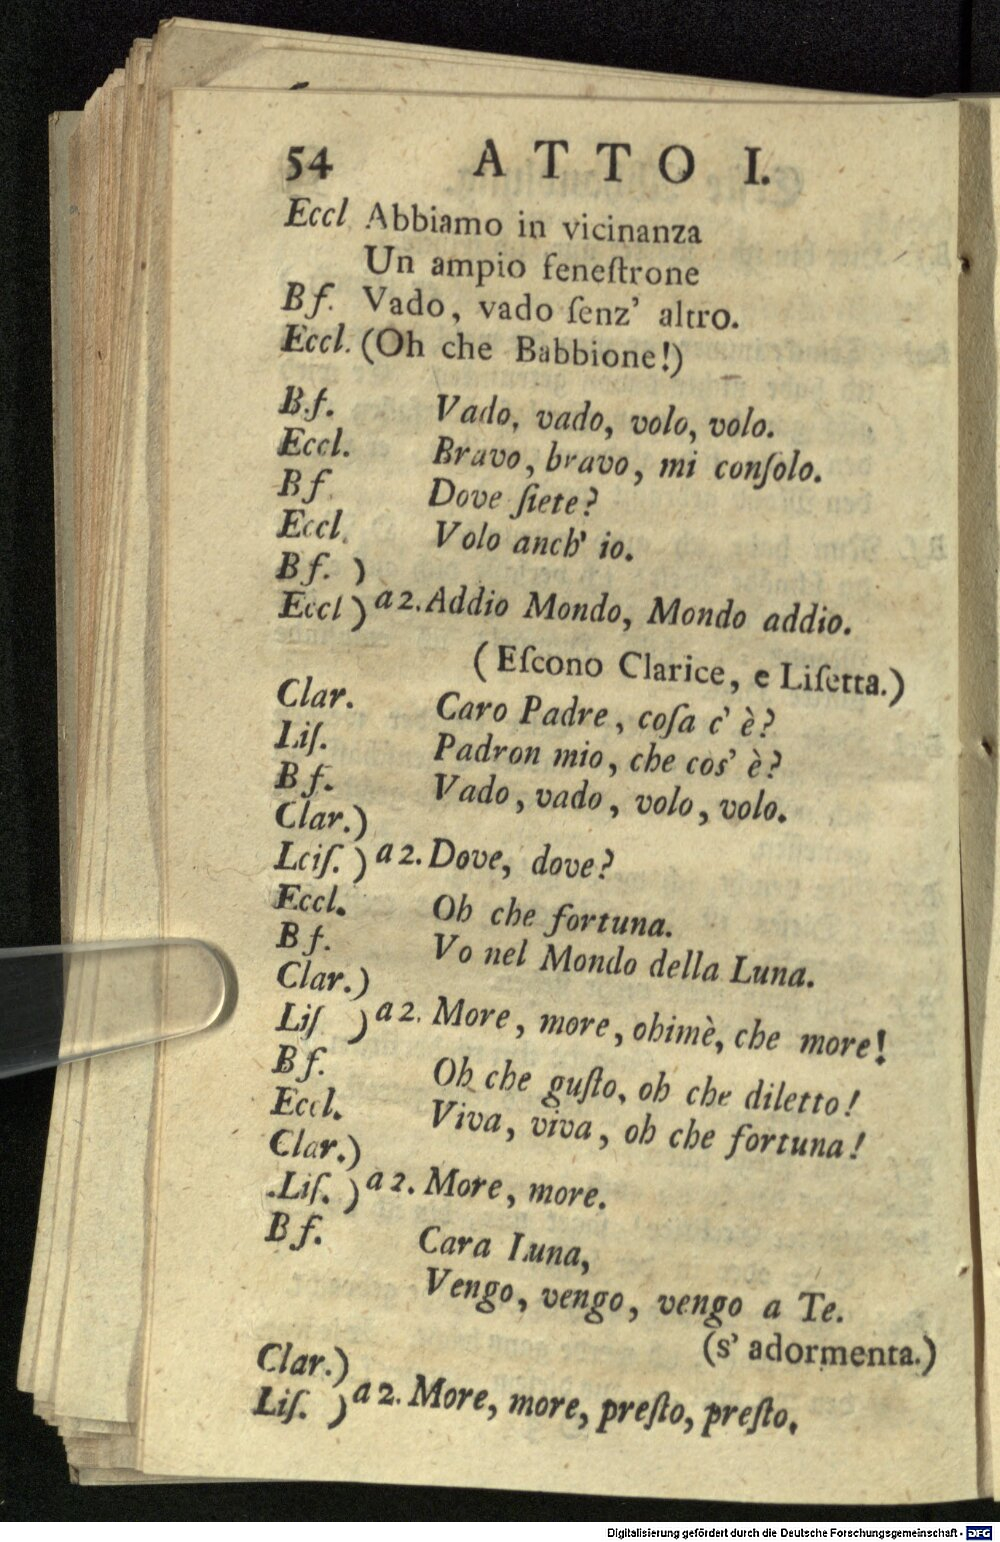 54 ATTO I.
Eccl Abbiamo in vicinanza
Un ampio feneſtrone
Bf. Vado, vado ſenz' altro.
Eccl. (Oh che Babbione!)
B.f. Vado, vado, volo, volo.
Eccl. Bravo, bravo, mi conſolo.
Bf Dove ſiete?
Eccl. Volo anch' io.
Bf. )
Eccl ) a 2. Addio Mondo, Mondo addio.
(Eſcono Clarice, e Liſetta.)
Clar. Caro Padre, coſa c' è?
Liſ. Padron mio, che cos' è?
Bf. Vado, vado, volo, volo.
Clar.)
Lciſ. ) a 2. Dove, dove?
Eccl. Oh che fortuna.
Bf. Vo nel Mondo della Luna.
Clar.)
Liſ ) a 2. More, more, ohimè, che more!
Bf. Oh che guſto, oh che diletto!
Eccl. Viva, viva, oh che fortuna!
Clar.)
.Liſ. ) a 2. More, more.
Bf. Cara Luna,
Vengo, vengo, vengo a Te.
(s' adormenta.)
Clar.)
Liſ. ) a 2. More, more, preſto, preſto.
Digitalisierung gefördert durch die Deutsche Forschungsgemeinschaft - DFG